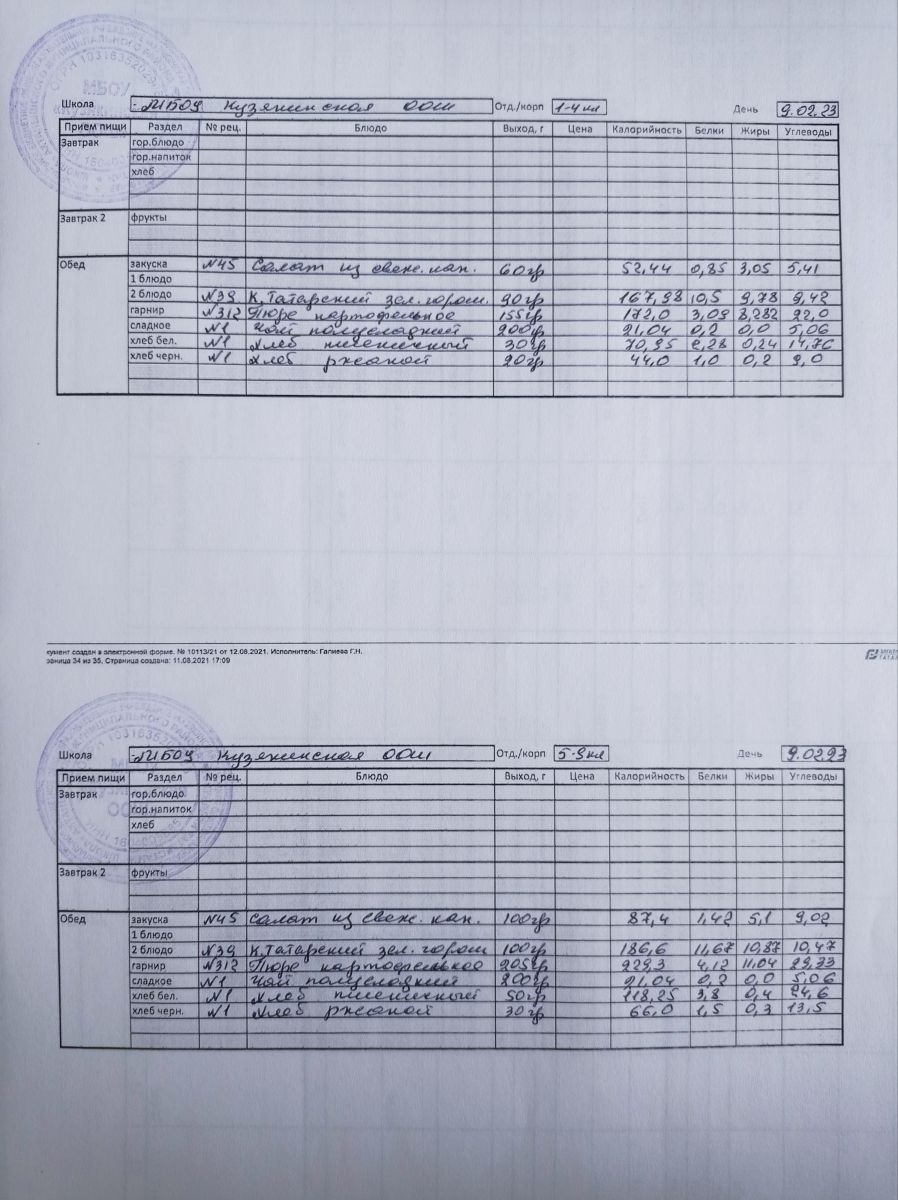 МБОУ
Школа МБОУ Кузякинская ООШ Отд./корп 1-4 кл День 9.02.23
Прием пищи Раздел № рец. Блюдо Выход, г Цена Калорийность Белки Жиры Углеводы
Завтрак гор.блюдо
гор.напиток
хлеб
Завтрак 2 фрукты
Обед закуска №45 Салат из свеж. кап. 60гр 52,44 0,85 3,05 5,41
1 блюдо
2 блюдо №39 К. Татарский зел. горош. 90гр 167,98 10,5 9,78 9,42
гарнир №312 Пюре картофельное 155гр 172,0 3,09 8,282 22,0
сладкое №1 Чай полусладкий 200гр 21,04 0,2 0,0 5,06
хлеб бел. №1 Хлеб пшеничный 30гр 70,95 2,28 0,24 14,76
хлеб черн. №1 Хлеб ржаной 20гр 44,0 1,0 0,2 9,0
кумент создан в электронной форме. № 10113/21 от 12.08.2021. Исполнитель: Галиева Г.Н.
раница 34 из 35. Страница создана: 11.08.2021 17:09
Школа МБОУ Кузякинская ООШ Отд./корп 5-9 кл День 9.02.23
Прием пищи Раздел № рец. Блюдо Выход, г Цена Калорийность Белки Жиры Углеводы
Завтрак гор.блюдо
гор.напиток
хлеб
Завтрак 2 фрукты
Обед закуска №45 Салат из свеж. кап. 100гр 87,4 1,42 5,1 9,02
1 блюдо
2 блюдо №39 К. Татарский зел. горош 100гр 186,6 11,67 10,87 10,47
гарнир №312 Пюре картофельное 205гр 229,3 4,12 11,04 29,33
сладкое №1 Чай полусладкий 200гр 21,04 0,2 0,0 5,06
хлеб бел. №1 Хлеб пшеничный 50гр 118,25 3,8 0,4 24,6
хлеб черн. №1 Хлеб ржаной 30гр 66,0 1,5 0,3 13,5